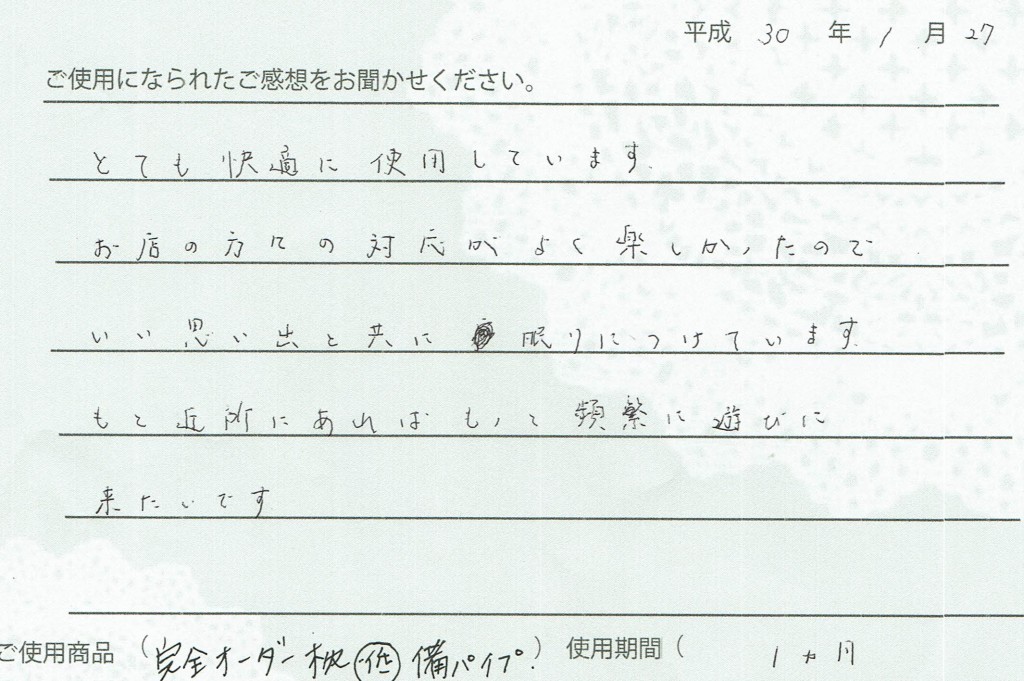 平成 30 年 1 月 27
ご使用になられたご感想をお聞かせください。
とても快適に使用しています.
お店の方々の対応がよく楽しかったので
いい思い出と共に 眠りにつけています.
もと近所にあればもっと頻繁に遊びに
来たいです
ご使用商品 (完全オーダー枕 低 備パイプ.) 使用期間( 1ヵ月